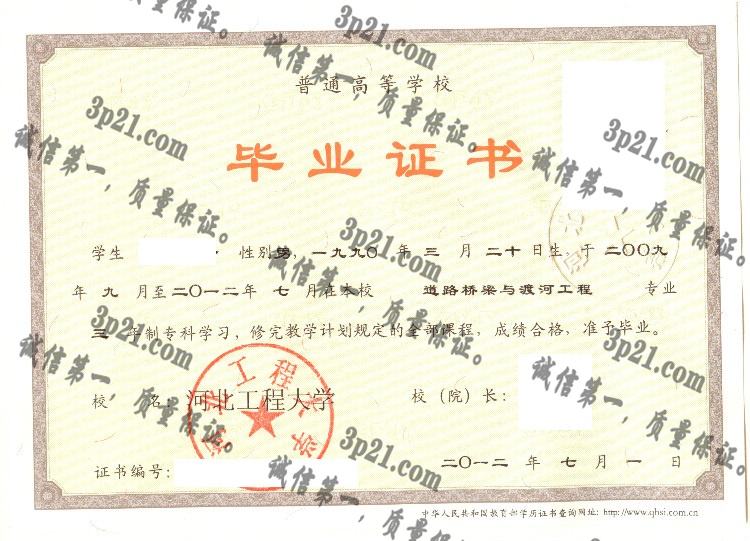 普通高等学校
毕业证书
学生 性别男，一九九〇年三月二十日生，于二〇〇九
年九月至二〇一二年七月在本校 道路桥梁与渡河工程 专业
三年制专科学习，修完教学计划规定的全部课程，成绩合格，准予毕业。
校 名：河北工程大学 校（院）长：
河北工程大学
证书编号： 二〇一二年七月一日
中华人民共和国教育部学历证书查询网址：http://www.qhsi.com.cn
3p21.com
诚信第一，质量保证。
3p21.com
诚信第一，质量保证。
3p21.com
诚信第一，质量保证。
3p21.com
诚信第一，质量保证。
3p21.com
诚信第一，质量保证。
3p21.com
诚信第一，质量保证。
3p21.com
诚信第一，质量保证。
3p21.com
诚信第一，质量保证。